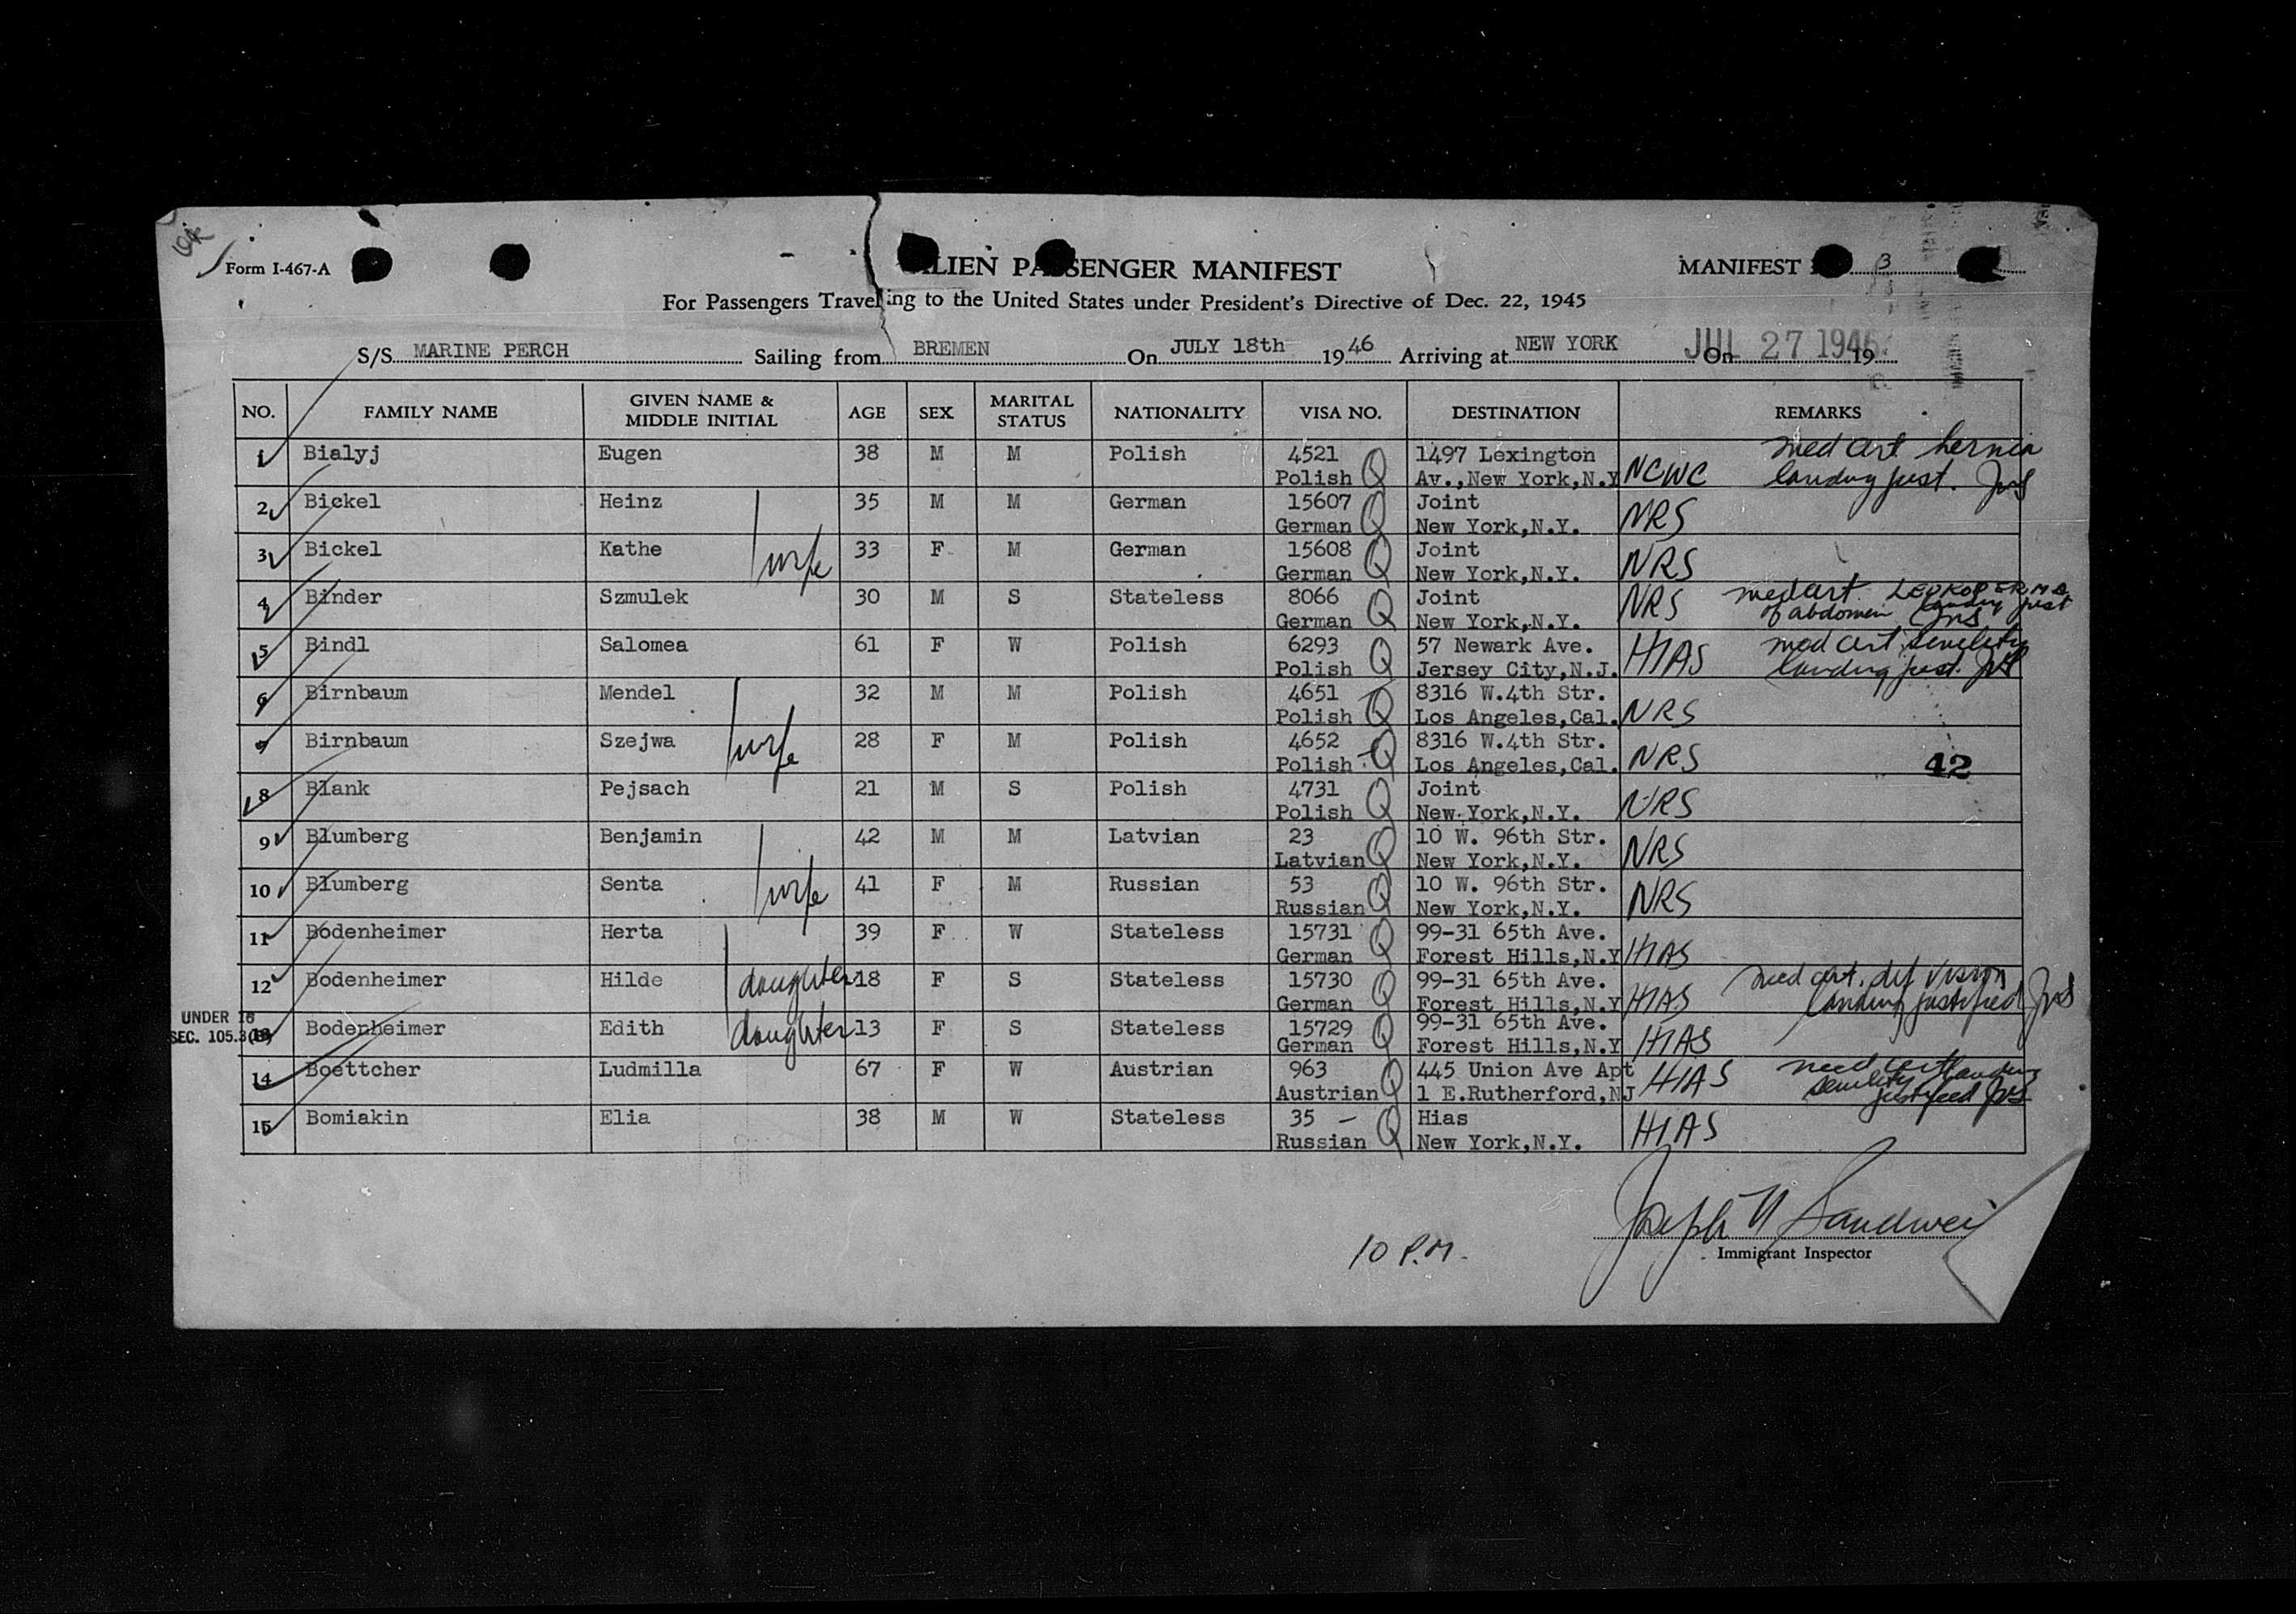 ok
Form I-467-A
ALIEN PASSENGER MANIFEST
MANIFEST 3
For Passengers Traveling to the United States under President's Directive of Dec. 22, 1945
S/S MARINE PERCH Sailing from BREMEN On JULY 18th 1946 Arriving at NEW YORK On JUL 27 1946 19
NO. FAMILY NAME GIVEN NAME & MIDDLE INITIAL AGE SEX MARITAL STATUS NATIONALITY VISA NO. DESTINATION REMARKS
1 Bialyj Eugen 38 M M Polish 4521 1497 Lexington med cert hernia
Polish Q Av.,New York,N.Y NCWC landing just. JNS
2 Bickel Heinz 35 M M German 15607 Joint
German Q New York,N.Y. NRS
3 Bickel Kathe wife 33 F M German 15608 Joint
German Q New York,N.Y. NRS
4 Binder Szmulek 30 M S Stateless 8066 Joint med cert. LEUKODERMA
German Q New York,N.Y. NRS of abdomen landing just JNS
5 Bindl Salomea 61 F W Polish 6293 57 Newark Ave. med cert senility
Polish Q Jersey City,N.J. HIAS landing just. JNS
6 Birnbaum Mendel 32 M M Polish 4651 8316 W.4th Str.
Polish Q Los Angeles,Cal. NRS
Birnbaum Szejwa wife 28 F M Polish 4652 8316 W.4th Str.
Polish Q Los Angeles,Cal. NRS 42
8 Blank Pejsach 21 M S Polish 4731 Joint
Polish Q New York,N.Y. NRS
9 Blumberg Benjamin 42 M M Latvian 23 10 W. 96th Str.
Latvian Q New York,N.Y. NRS
10 Blumberg Senta wife 41 F M Russian 53 10 W. 96th Str.
Russian Q New York,N.Y. NRS
11 Bodenheimer Herta 39 F W Stateless 15731 99-31 65th Ave.
German Q Forest Hills,N.Y HIAS
12 Bodenheimer Hilde daughter 18 F S Stateless 15730 99-31 65th Ave. med cert. def vision
German Q Forest Hills,N.Y HIAS landing justified JNS
UNDER 16
SEC. 105.3
13 Bodenheimer Edith daughter 13 F S Stateless 15729 99-31 65th Ave.
German Q Forest Hills,N.Y HIAS
14 Boettcher Ludmilla 67 F W Austrian 963 445 Union Ave Apt med cert landing
Austrian Q 1 E.Rutherford,NJ HIAS senility justified JNS
15 Bomiakin Elia 38 M W Stateless 35 - Hias
Russian Q New York,N.Y. HIAS
Joseph N Sandweis
10 P.M.
Immigrant Inspector